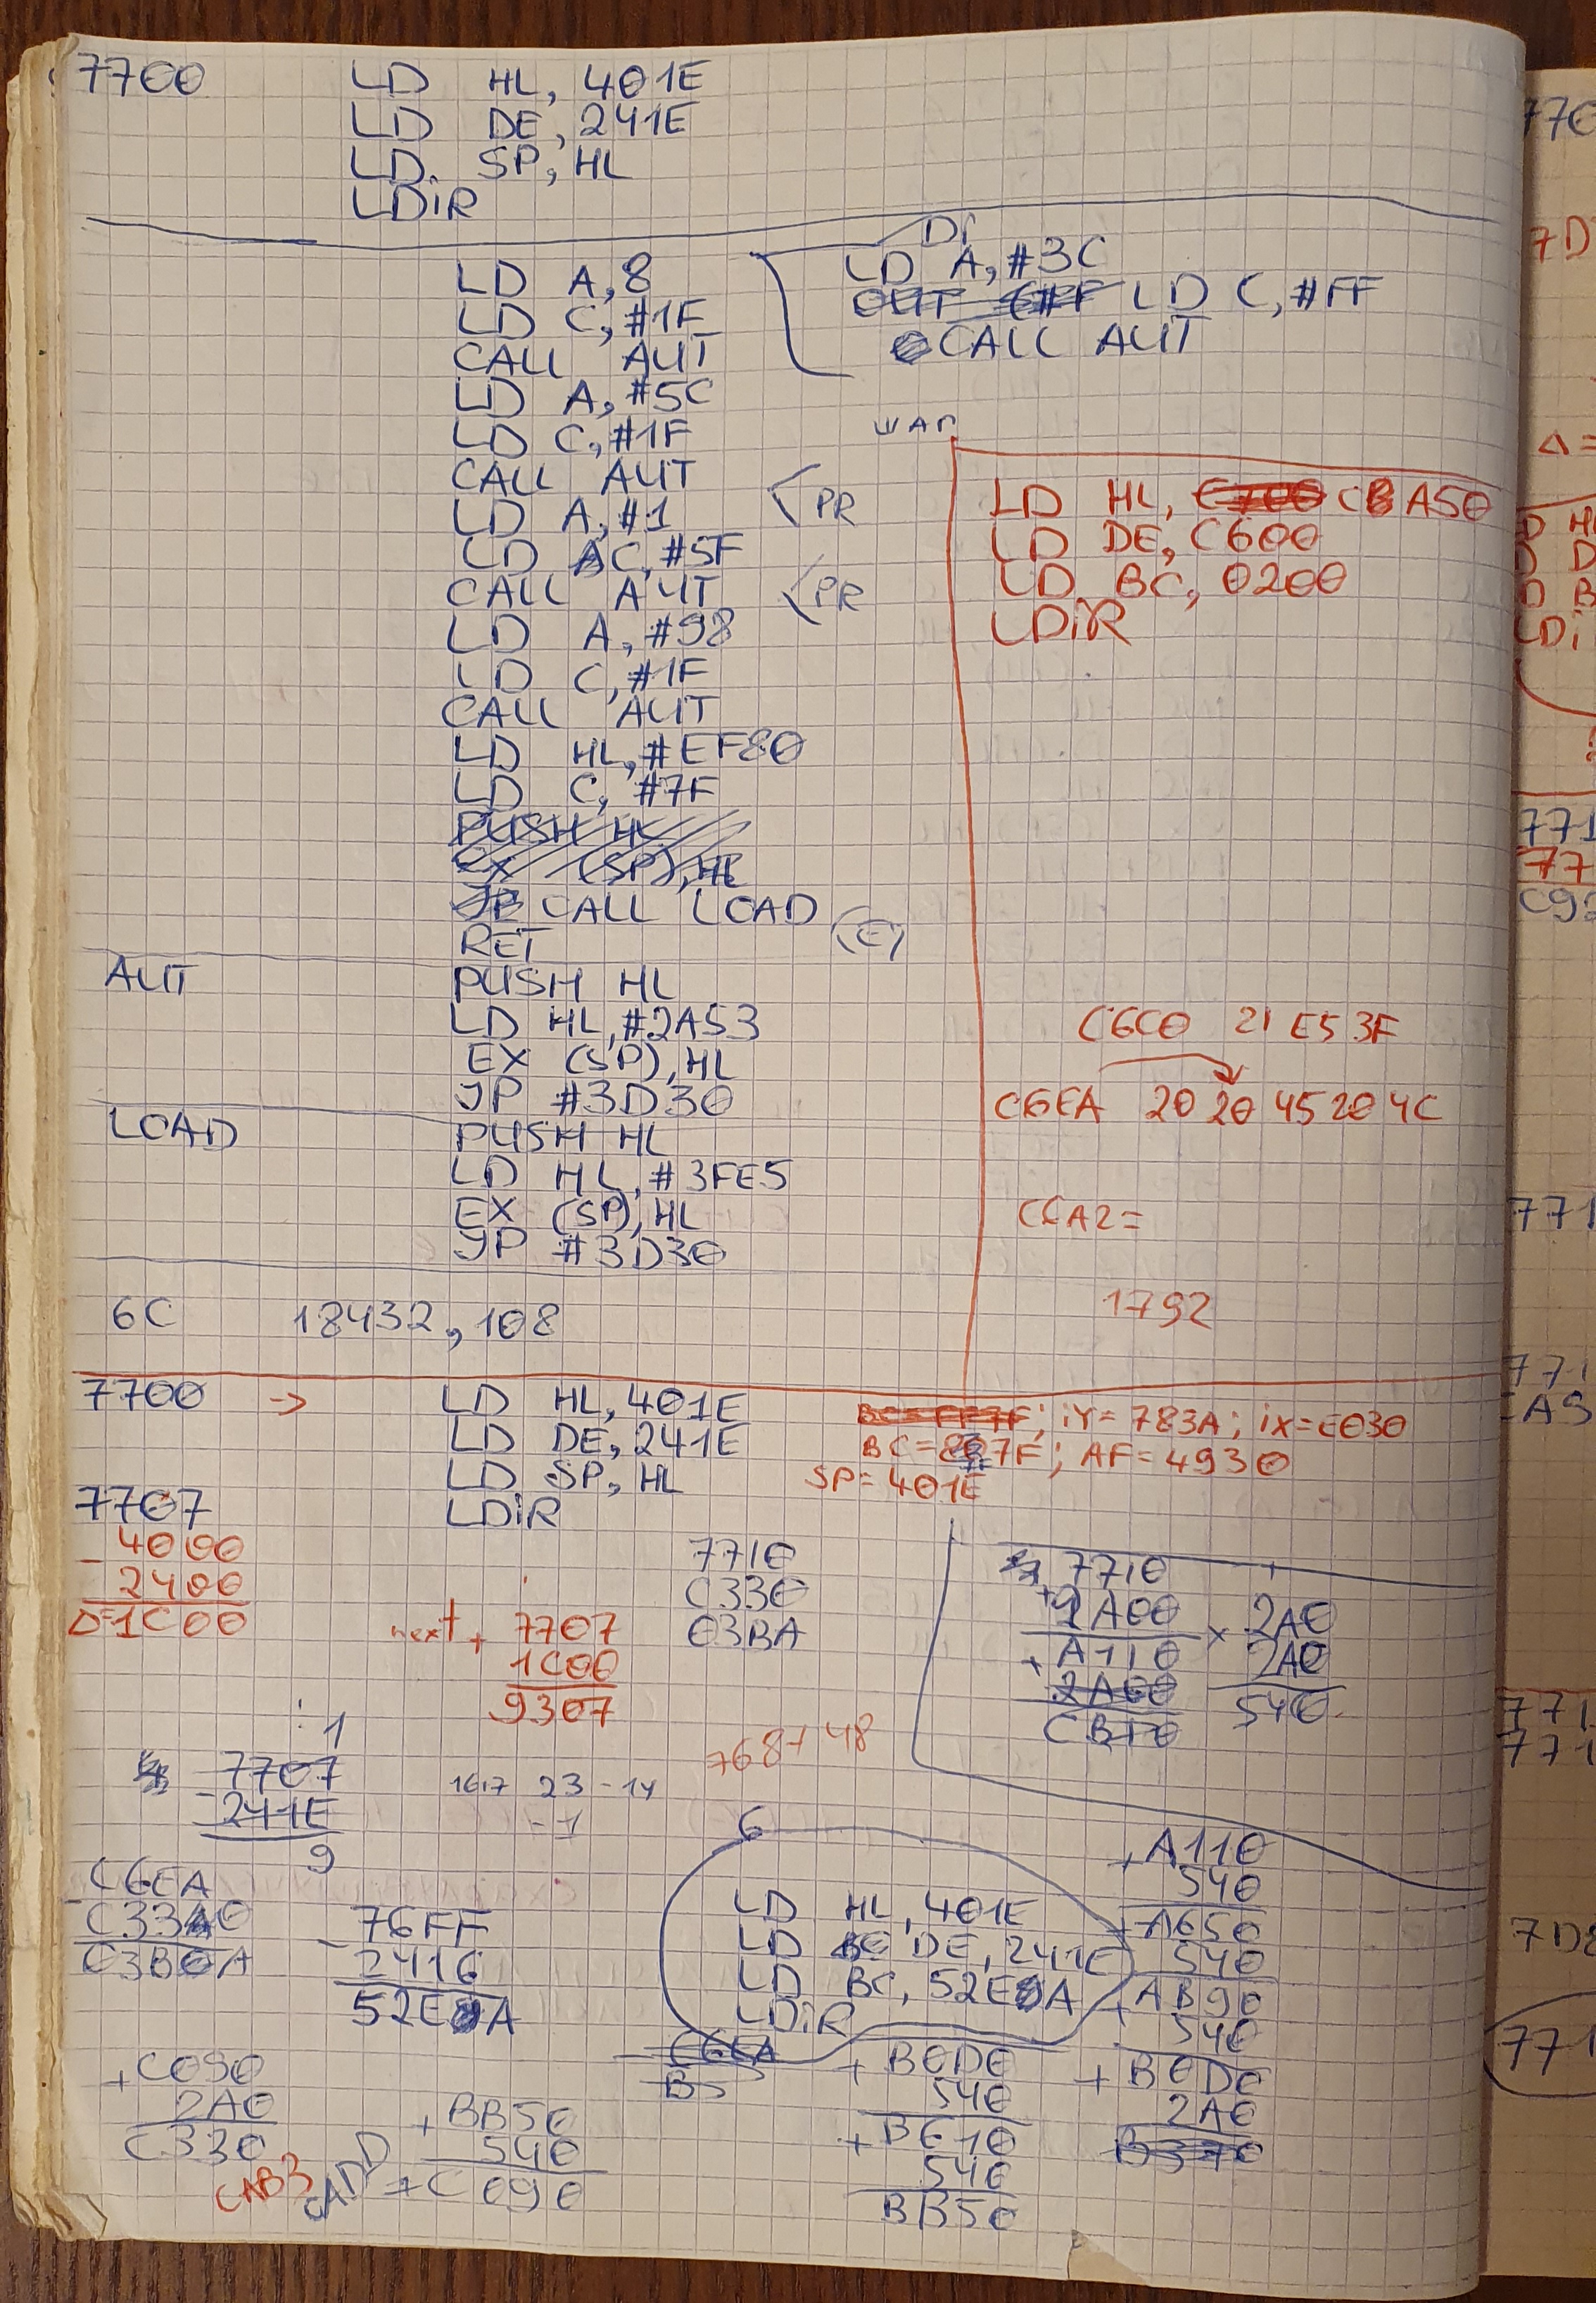 7700 LD HL, 401E
LD DE, 241E
LD. SP, HL
LDiR
LD A, 8
LD C, #1F
CALL AUT
LD A, #5C
LD C, #1F
CALL AUT
LD A, #1
LD C, #5F
CALL AUT
LD A, #98
LD C, #1F
CALL AUT
LD HL, #EF80
LD C, #7F
PUSH HL
EX (SP), HL
JP CALL LOAD
RET
DI
LD A, #3C
OUT LD C, #FF
CALL AUT
<PR
<PR
LD HL, C700 A50
LD DE, C600
LD BC, 0200
LDiR
AUT PUSH HL
LD HL, #2A53
EX (SP), HL
JP #3D30
LOAD PUSH HL
LD HL, #3FE5
EX (SP), HL
JP #3D30
C6C0 21 E5 3F
C6EA 20 20 45 20 4C
1792
6C 18432, 108
7700 → LD HL, 401E
LD DE, 241E
LD SP, HL
7707 LDiR
BC=FF7F; iY= 783A; iX=E030
; AF=4930
SP=401E
- 4000
2400
D=1C00
next + 7707
1C00
9307
7710
C330
03BA
7710
+ 2A00
+ A110
2A00
CB10
× 2A0
2A0
540
768+48
1
7707
- 241E
9
16,7 23 - 14
- 1
C6EA
-
76FF
- 2416
52E A
6
LD HL, 401E
LD DE, 241E
LD BC, 52E A
LDiR
C6EA
B5
+ A110
540
+ A650
540
+ AB90
540
+ B0D0
2A0
B370
+ B0D0
540
+ B610
540
BB50
+ BB50
540
+ C090
+ C090
2A0
C330
CAB3
CADD
770
7D
771
77
C92
771
771
771
771
7D8
771